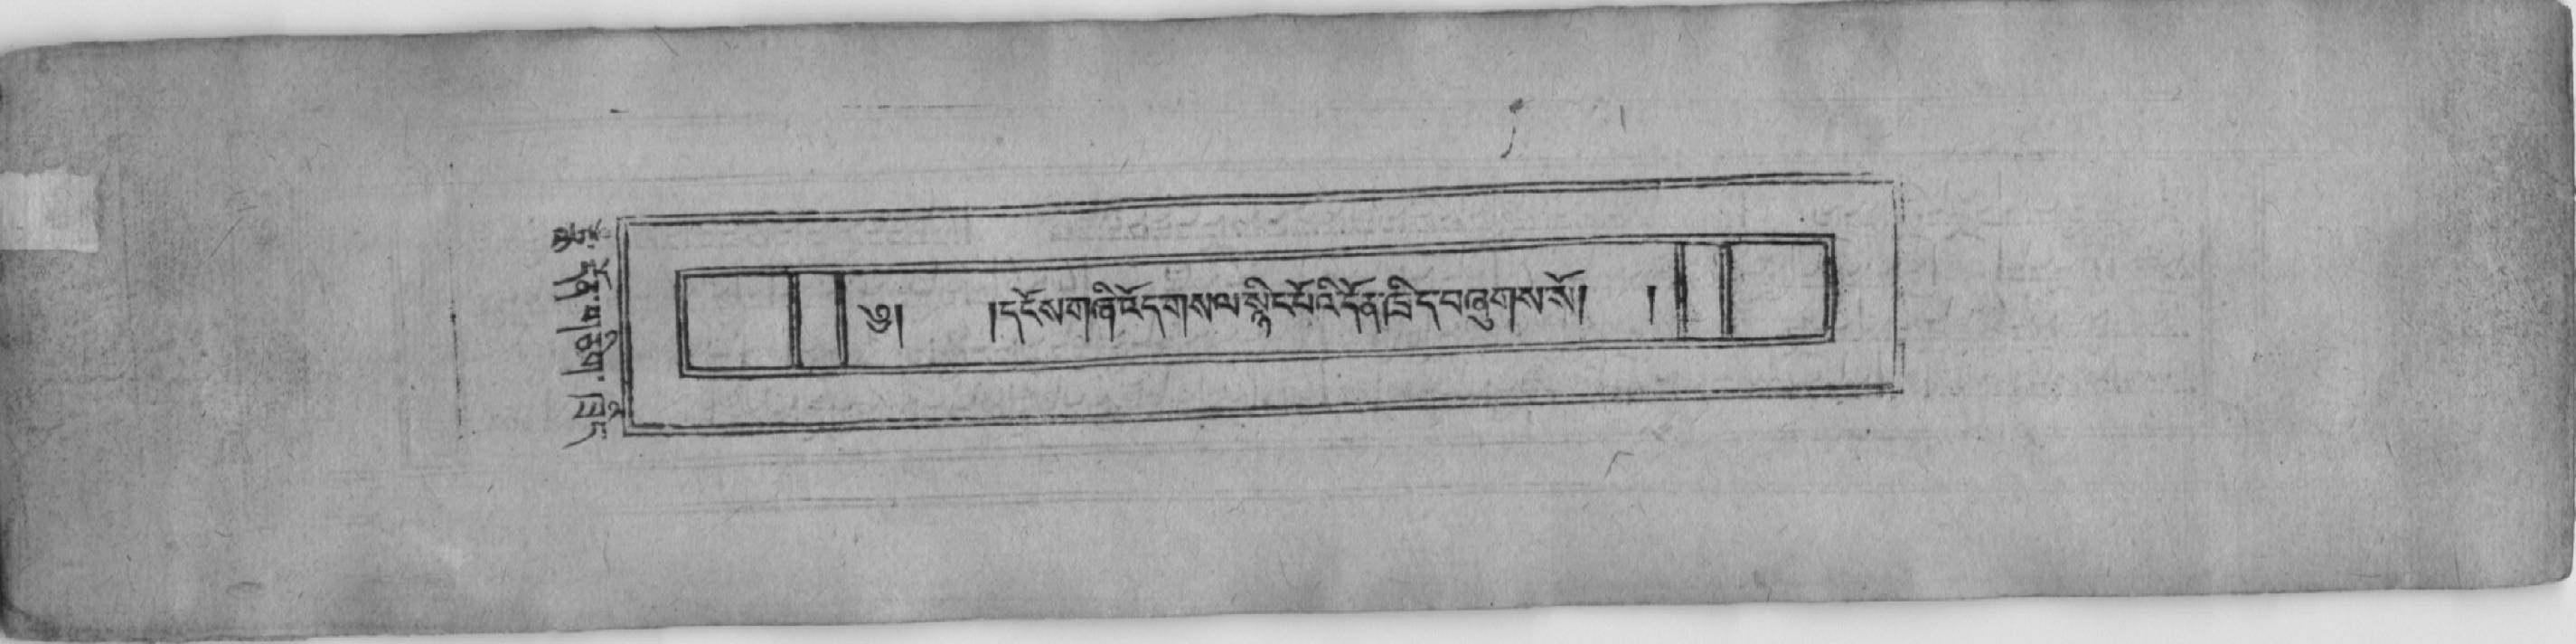 ༄། །དངོས་གཞི་འོད་གསལ་སྙིང་པོའི་དོན་ཁྲིད་བཞུགས་སོ། །